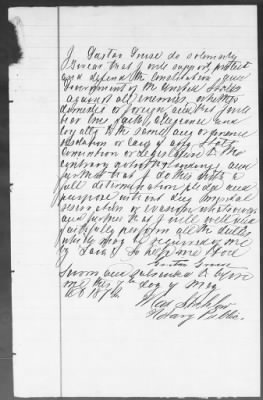 I Gustav Kruse do solemnly
swear that I will support, protect
and defend the Constitution and
Government of the United States
against all enemies, whether
domestic or foreign, and that I will
bear true faith, allegiance and
loyalty to the same, any ordinance
resolution or law of any State
Convention or Legislature to the
contrary notwithstanding, and
further that I do this with a
full determination pledge and
purpose without any mental
reservation or evasion whatsoever
and further that I will well and
faithfully perform all the duties
which may be required of me
by law. So help me God
Sworn and subscribed to before
me this 7th day of May
A.D. 187
Notary Public